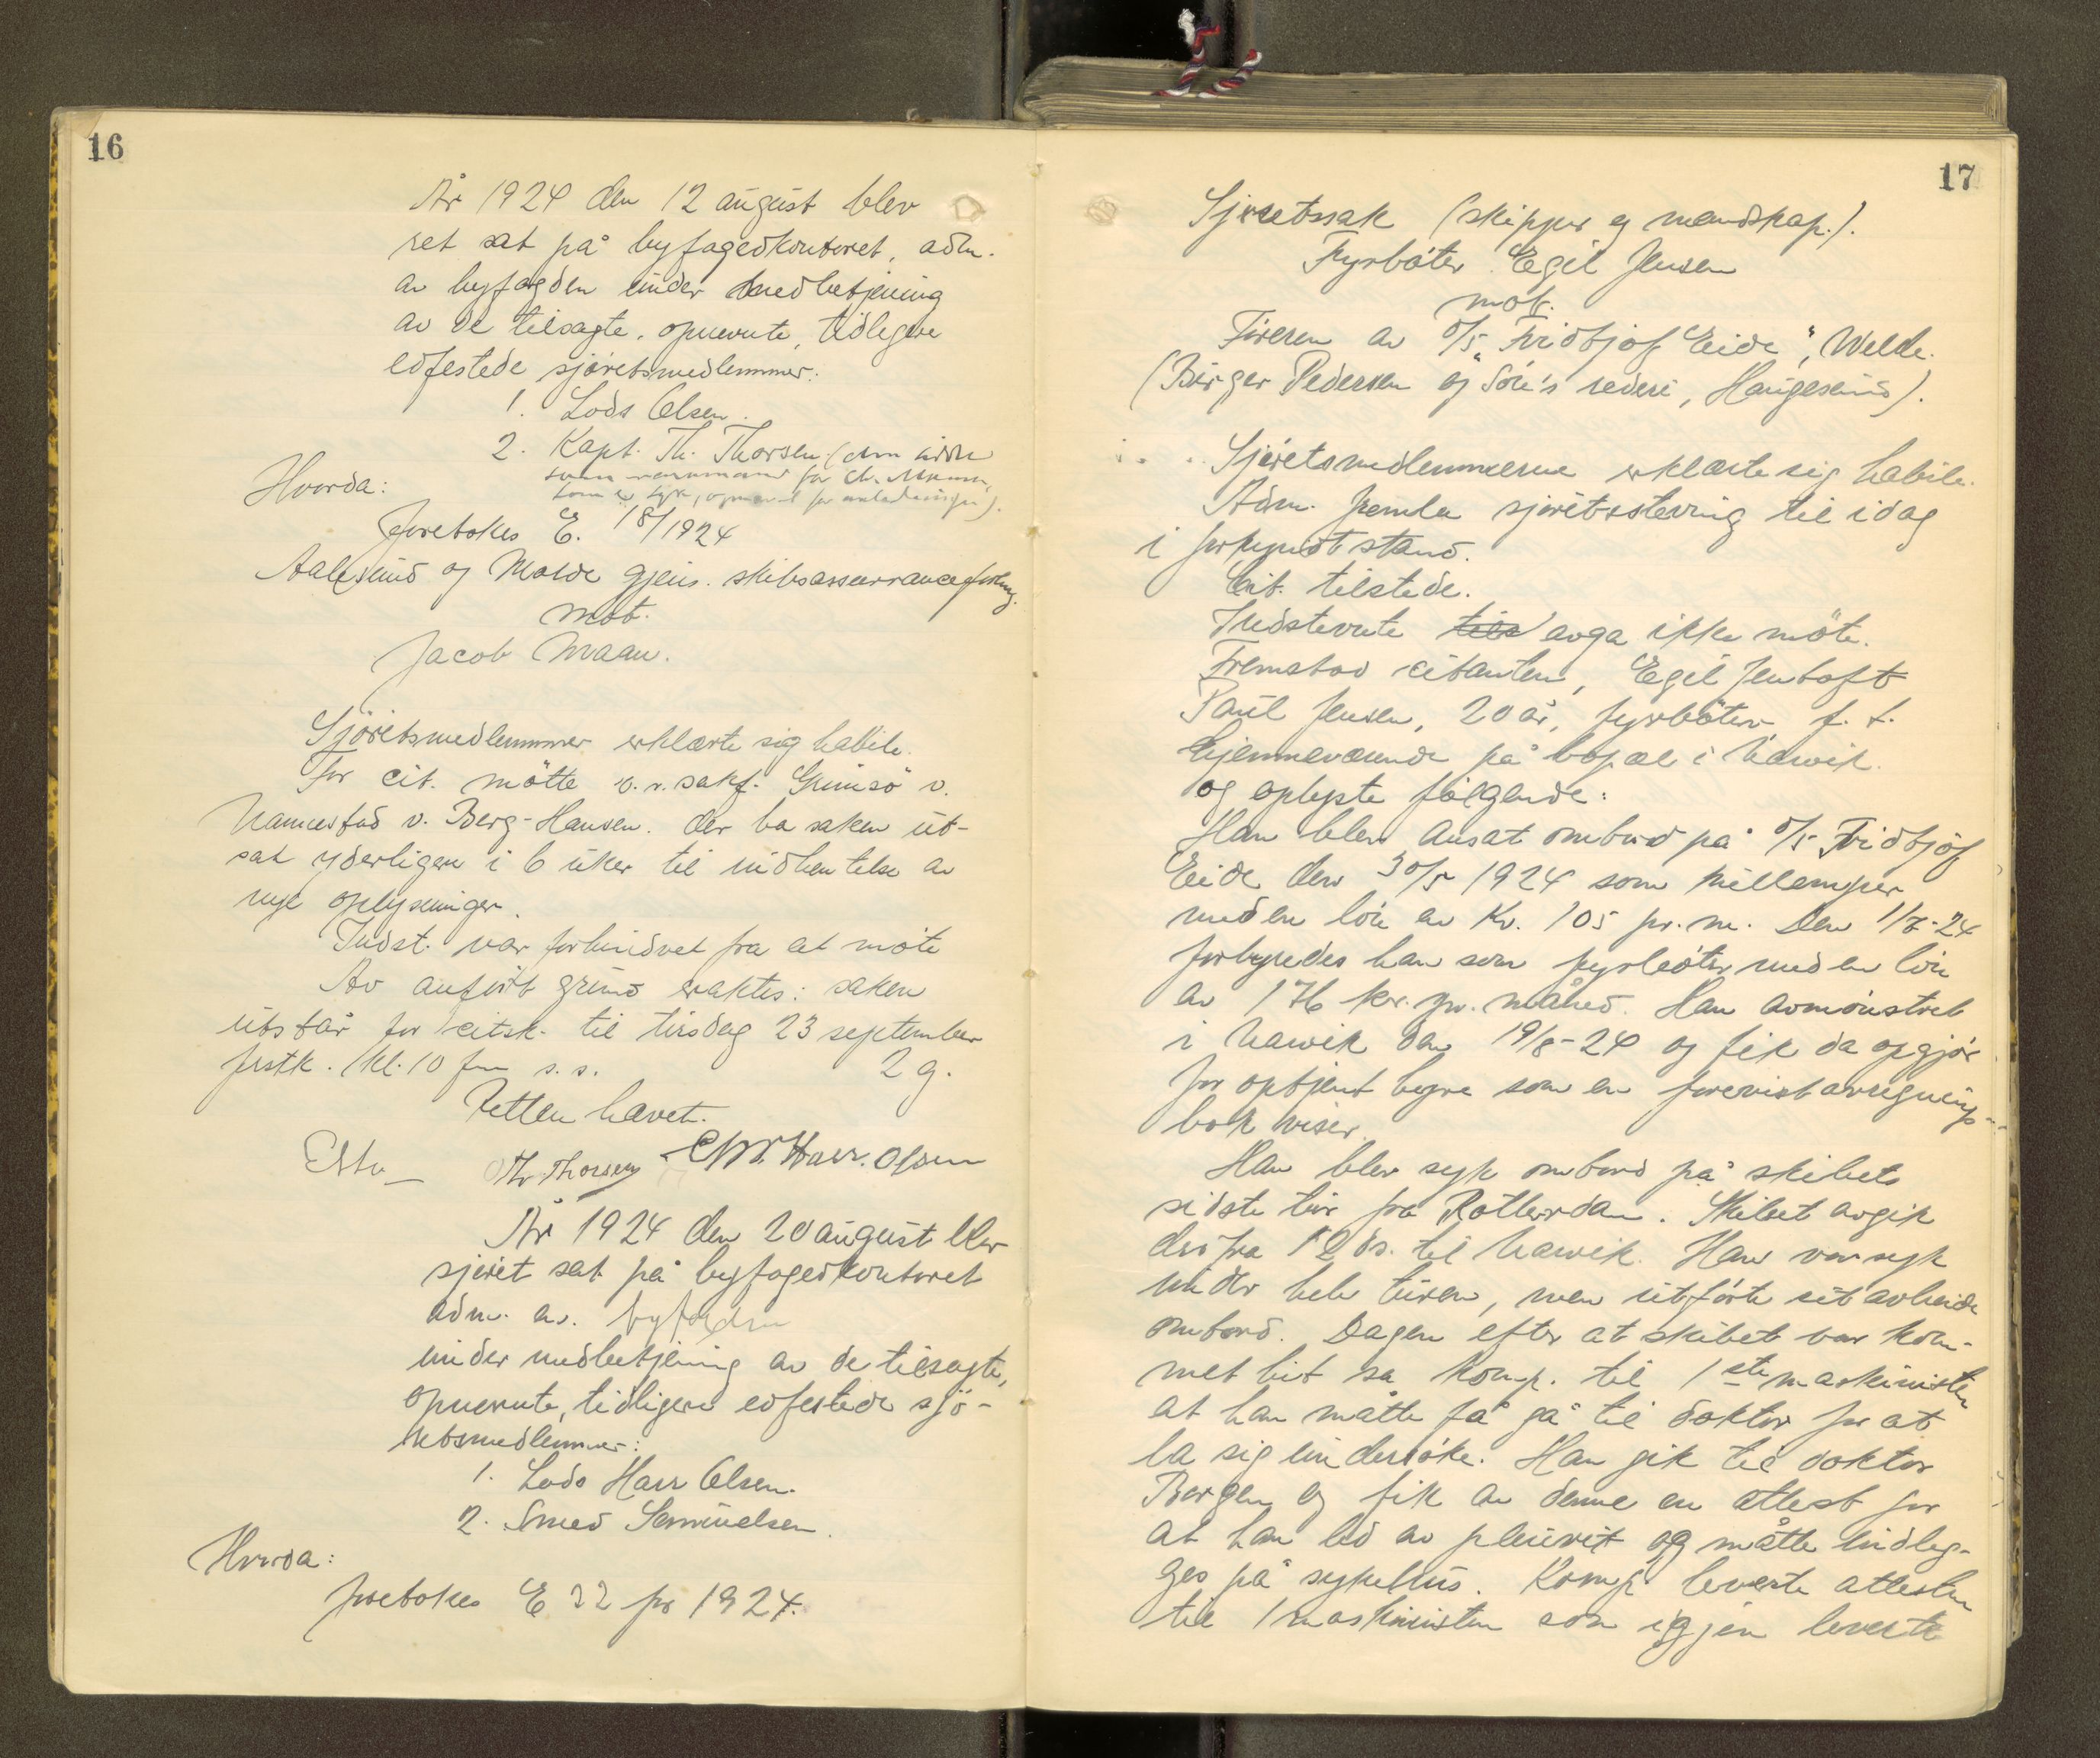 16
År 1924 den 12 august blev
ret sat på byfogedkontoret, adm.
av byfogden under medbetjening
av de tilsagte, opnevnte, tidligere
edfestede sjøretsmedlemmer:
1. Lods Olsen.
2. Kapt. Th. Thorsen (den sidste
som varamand for
som er syk,
Hvorda:
Foretokes E. 18/1924
Aalesund og Molde gjens. skibsassuranceforening.
mot.
Jacob Maan.
Sjöretsmedlemmer erklærte sig habile.
For cit. mötte o.r.sakf. Grimsö v.
Hannestad v. Berg-Hansen. der ba saken ut-
sat yderligere i 6 uker til indhentelse av
nye oplysninger.
Indst. var forhindret fra at möte
Av anfört grund eragtes: saken
utstår for citsk. til tirsdag 23 september
førstk. kl. 10 fm s.s. 2 g.
Retten hævet.
Th. Thorsen Chr. Harr. Olsen
År 1924 den 20 august blev
sjøret sat på byfogedkontoret
adm. av. byfogden
under medbetjening av de tilsagte,
opnevnte, tidligere edfestede sjö-
retsmedlemmer:
1. Lods Harr Olsen.
2. Smed Samuelsen.
Hvorda:
foretokes E 22 for 1924.
17
Sjøretssak (skipper og mandskap.).
Fyrböter Egil Jensen
mot.
Føreren av D/S „Fridtjof Eide", Welde.
(Birger Pedersen og Søn's rederi, Haugesund).
Sjøretsmedlemmerne erklærte sig habile.
Adm. fremla sjøretsstevning til idag
i forkyndt stand.
Cit. tilstede.
Indstevnte avga ikke möte.
Fremstod citanten, Egil Jentoft
Paul Jensen, 20 år, fyrböter f. t.
hjemmeværende på bopæl i Narvik.
og oplyste følgende:
Han blev ansat ombord på D/S Fridtjof
Eide den 30/5 1924 som killemper
med en løn av Kr. 105 pr. m. Den 1/7-24
forhyredes han som fyrbøter med en løn
av 176 kr. pr. måned. Han avmønstret
i Narvik den 19/8-24 og fik da opgjør
for optjent hyre som en forevist avregnings-
bok viser.
Han blev syk ombord på skibets
sidste tur fra Rotterdam. Skibet avgik
derfra 12 ds. til Narvik. Han var syk
under hele turen, men utførte sit arbeide
ombord. Dagen efter at skibet var kom-
met hit sa komp. til 1ste maskinisten
at han måtte få gå til doktor for at
la sig undersøke. Han gik til doktor
Borgen og fik av denne en attest for
at han led av pleurit og måtte indleg-
ges på sykehus. Komp. leverte attesten
til 1 maskinisten som igjen leverte